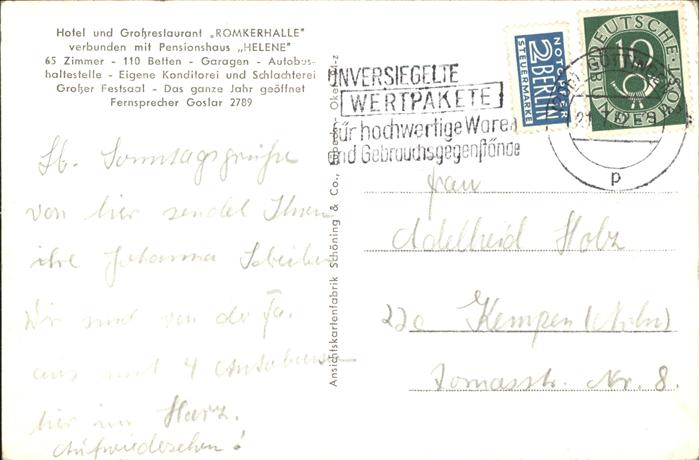 Hotel und Großrestaurant „ROMKERHALLE"
verbunden mit Pensionshaus „HELENE"
65 Zimmer - 110 Betten - Garagen - Autobus-
haltestelle - Eigene Konditorei und Schlachterei
Großer Festsaal - Das ganze Jahr geöffnet
Fernsprecher Goslar 2789
Lb. Sonntagsgrüße
von hier sendet Ihnen
ihre Johanna
Wir sind von der Fa.
aus mit 4 Autobussen
hier im Harz.
Aufwiedersehen!
Ansichtskartenfabrik Schöning & Co., Lübeck
UNVERSIEGELTE
WERTPAKETE
für hochwertige Waren
und Gebrauchsgegenstände
NOTOPFER
2 BERLIN
STEUERMARKE
DEUTSCHE
BUNDESPOST
10
p
Frau
Adelheid Holz
22a Kempen (Nrhn)
Tomasstr. Nr. 8.